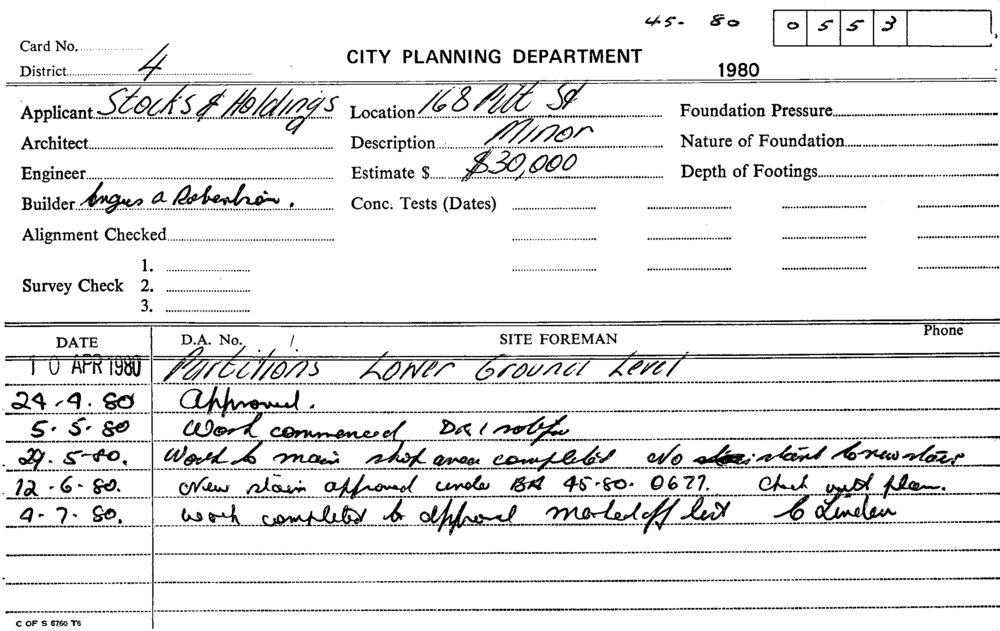 45- 80 0 5 5 3
Card No.
District 4
CITY PLANNING DEPARTMENT
1980
Applicant Stocks & Holdings Location 168 Pitt St Foundation Pressure
Architect Description Minor Nature of Foundation
Engineer Estimate $ $30,000 Depth of Footings
Builder Angus A Robertson. Conc. Tests (Dates)
Alignment Checked
1.
Survey Check 2.
3.
DATE D.A. No. 1. SITE FOREMAN Phone
10 APR 1980 Partitions Lower Ground Level
24-4.80 Approved.
5-5-80 Work commenced
29.5-80. Work to main shop area completed No start to new stair
12-6-80. New stair approved under BA 45-80-0677. Check with plan.
4-7-80. Work completed to approval Marked off list C Linden
C OF S 6760 T6